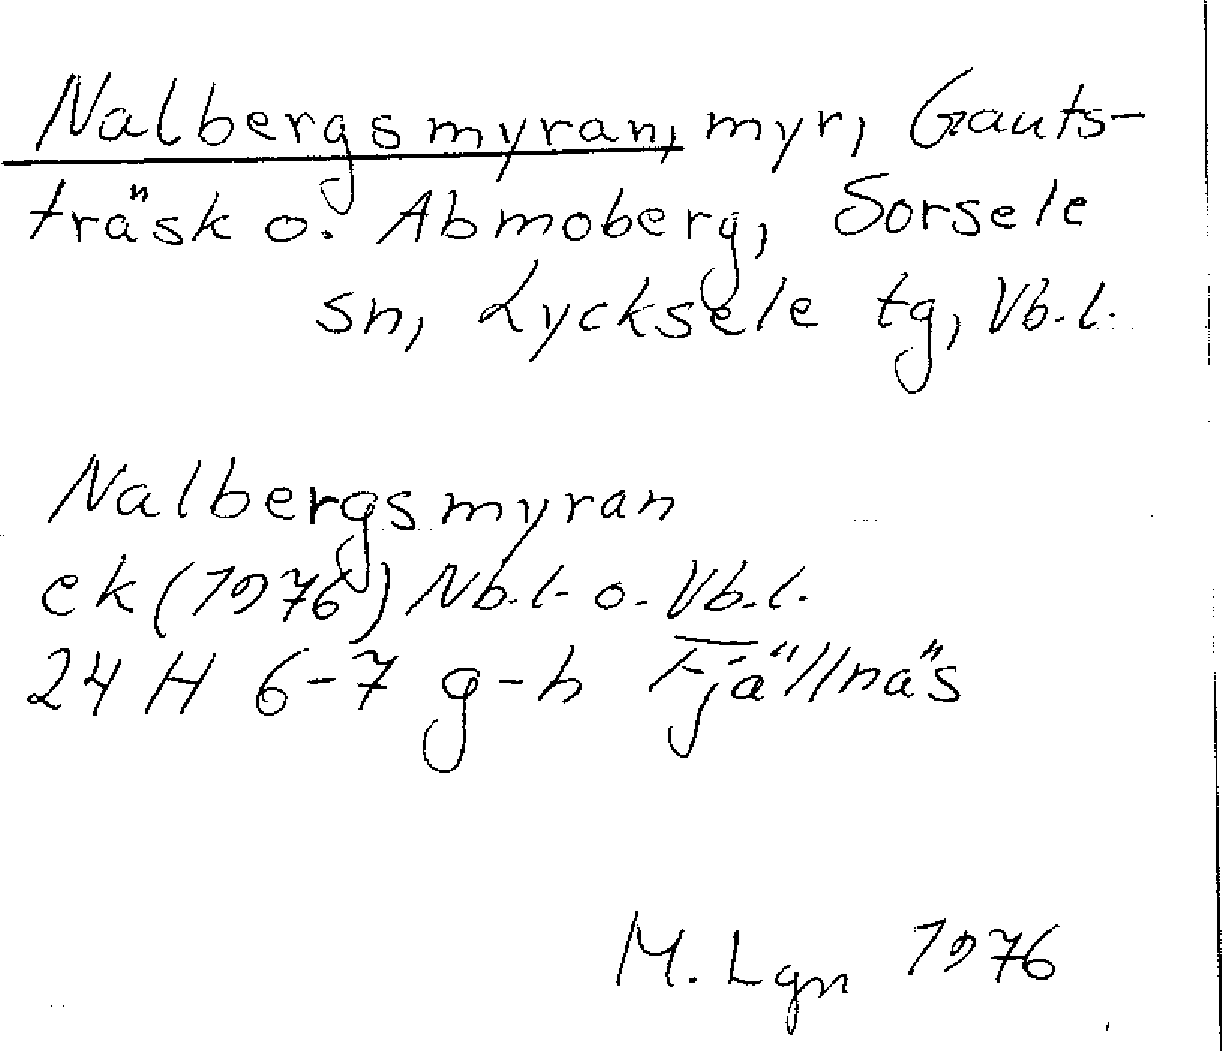 Nalbergsmyran, myr, Gauts-
träsk o. Abmoberg, Sorsele
sn, Lycksele tg, Vb.l.
Nalbergsmyran
ek (1976) Nb.l. o. Vb.l.
24 H 6-7 g-h Fjällnäs
M. Lgn 1976